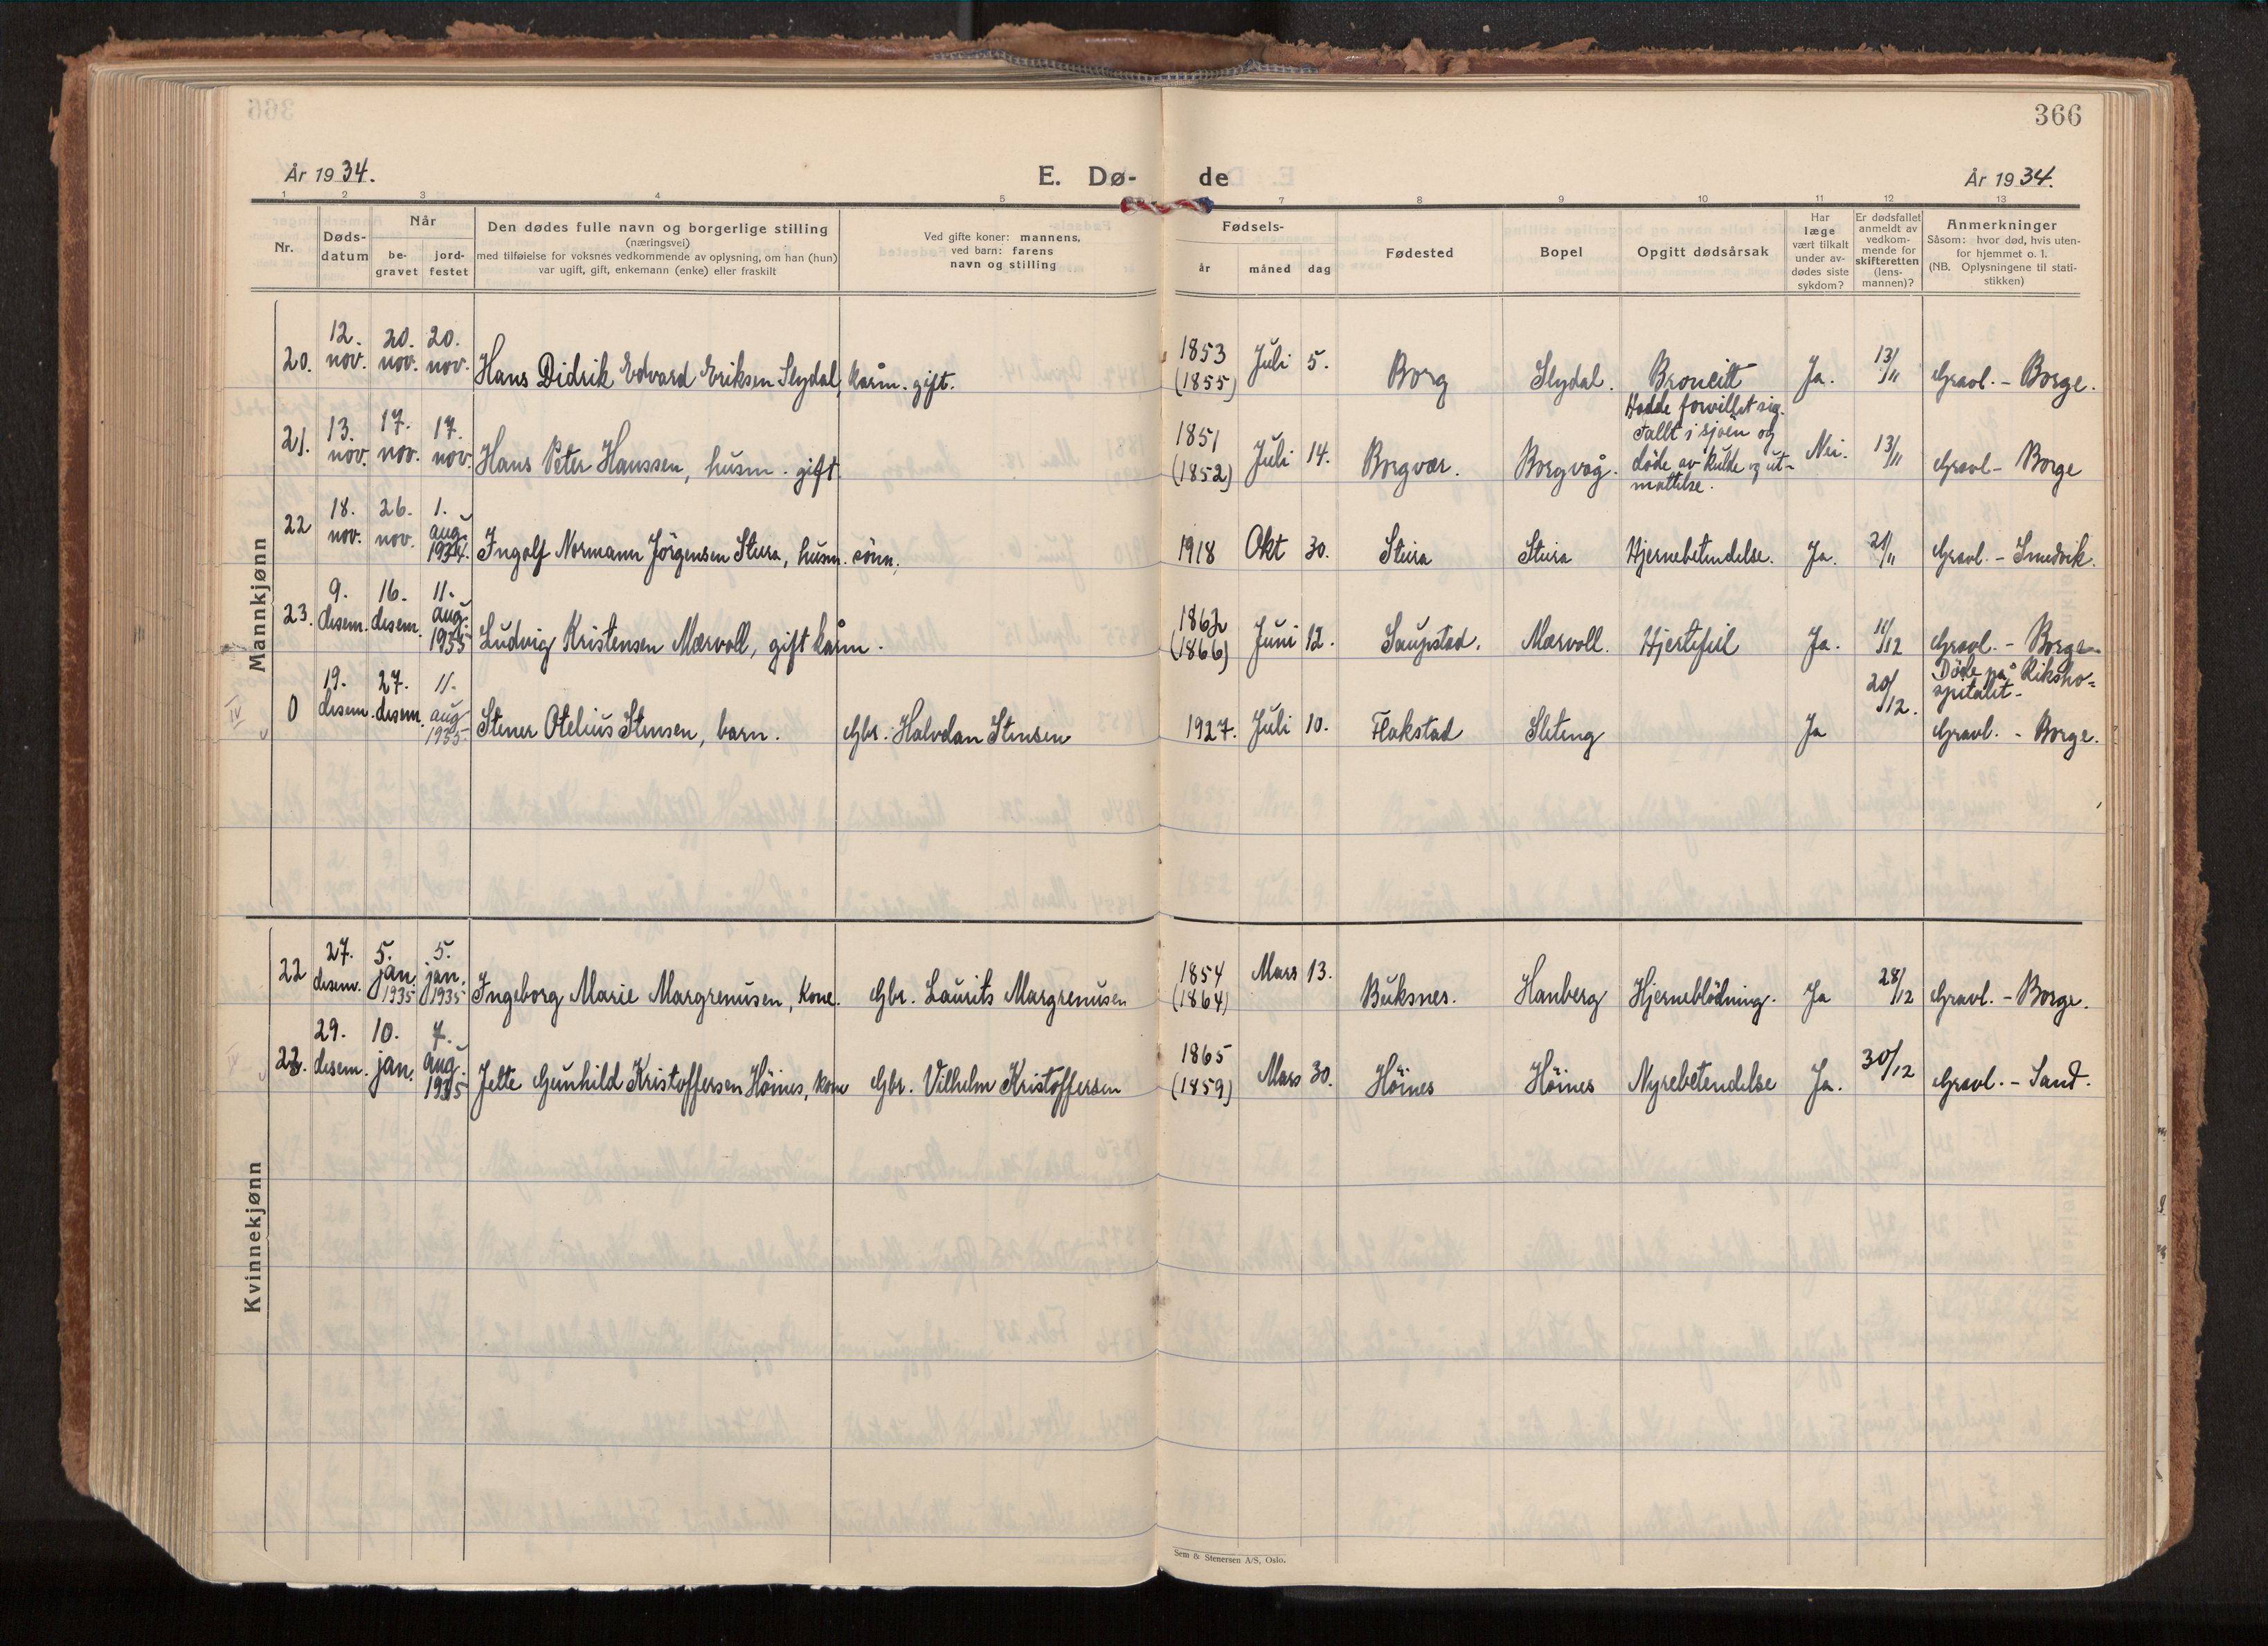 366
År 1934.
E. Dø-
de
År 1934.
1 2 3 4 5 7 8 9 10 11 12 13
Nr.
Døds-
datum
Når
be-
gravet
jord-
festet
Den dødes fulle navn og borgerlige stilling
(næringsvei)
med tilføielse for voksnes vedkommende av oplysning, om han (hun)
var ugift, gift, enkemann (enke) eller fraskilt
Ved gifte koner: mannens,
ved barn: farens
navn og stilling
Fødsels-
år
måned
dag
Fødested
Bopel
Opgitt dødsårsak
Har
læge
vært tilkalt
under av-
dødes siste
sykdom?
Er dødsfallet
anmeldt av
vedkom-
mende for
skifteretten
(lens-
mannen)?
Anmerkninger
Såsom: hvor død, hvis uten-
for hjemmet o. l.
(NB. Oplysningene til stati-
stikken)
Mannkjønn
20. 12. nov. 20. nov. 20. nov. Hans Didrik Edvard Eriksen Slydal, kårm. gift. 1853 (1855) Juli 5. Borg Slydal. Broncitt Ja. 13/11 Gravl. - Borge.
21. 13. nov. 17. nov. 17. nov. Hans Peter Hanssen, husm. gift. 1851 (1852) Juli 14. Borgvær. Borgvåg. Hadde forvillet sig. Fallt i sjøen og døde av kulde og ut-mattelse. Nei. 13/11 Gravl - Borge
22 18. nov. 26. nov. 1. aug. 1934. Ingolf Normann Jörgensen Steira, husm. sönn. 1918 Okt 30. Steira Steira Hjernebetendelse. Ja. 21/11 Gravl. - Smedvik.
23. 9. desem. 16. desem. 11. aug. 1935 Ludvig Kristensen Mærvoll, gift kårm. (1866) Juni 12. Saupstad. Mærvoll. Hjertefeil Ja. 11/12 Gravl. - Borge.
IV 0 19. desem. 27. desem. 11. aug 1935. Stener Otelius Stensen, barn. Gbr. Halvdan Stensen 1927. Juli 10. Flakstad Sleteng Ja 20/12. Døde på Riksho-spitalet- Gravl. - Borge.
Kvinnekjønn
22 27. desem. 5. jan. 1935 5. jan. 1935 Ingeborg Marie Margrenusen, kone. Gbr. Laurits Margrenusen 1854 (1864) Mars 13. Buksnes. Hanberg Hjerneblödning. Ja 28/12 Gravl. - Borge.
29. desem. 10. jan. 7. aug. 1935 Jette Gunhild Kristoffersen Höines, kone Gbr. Vilhelm Kristoffersen 1865 (1859) Mars 30. Höines Höines Nyrebetendelse Ja. 30/12 Gravl. - Sand.
Sem & Stenersen A/S, Oslo.